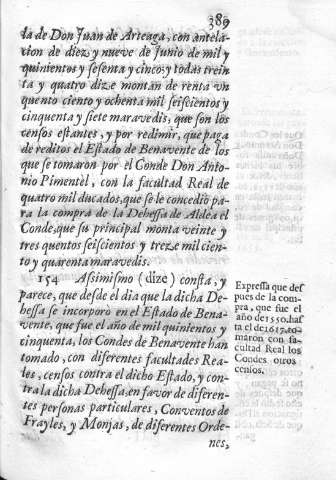 389
la de Don Juan de Arteaga, con antela-
cion de diez y nueve de Junio de mil y
quinientos y sesenta y cinco; y todas trein
ta y quatro dize montan de renta vn
quento ciento y ochenta mil seiscientos y
cinquenta y siete maravedis, que son los
censos estantes, y por redimir, que paga
de reditos el Estado de Benavente de los
que se tomaron por el Conde Don Anto-
nio Pimentèl, con la facultad Real de
quatro mil ducados, que se le concedio pa-
ra la compra de la Dehessa de Aldea el
Conde, que su principal monta veinte y
tres quentos seiscientos y treze mil cien-
to y quarenta maravedis.
154 Assimismo (dize) consta, y
parece, que desde el dia que la dicha De-
hessa se incorporò en el Estado de Bena-
vente, que fue el año de mil quinientos y
cinquenta, los Condes de Benavente han
tomado, con diferentes facultades Rea-
les, censos contra el dicho Estado, y con-
tra la dicha Dehessa, en favor de diferen-
tes personas particulares, Conventos de
Frayles, y Monjas, de diferentes Orde-
nes,
Expressa que des
pues de la com-
pra, que fue el
año de 1550. has
ta el de 1617. to-
maron con fa-
cultad Real los
Condes otros
censos.